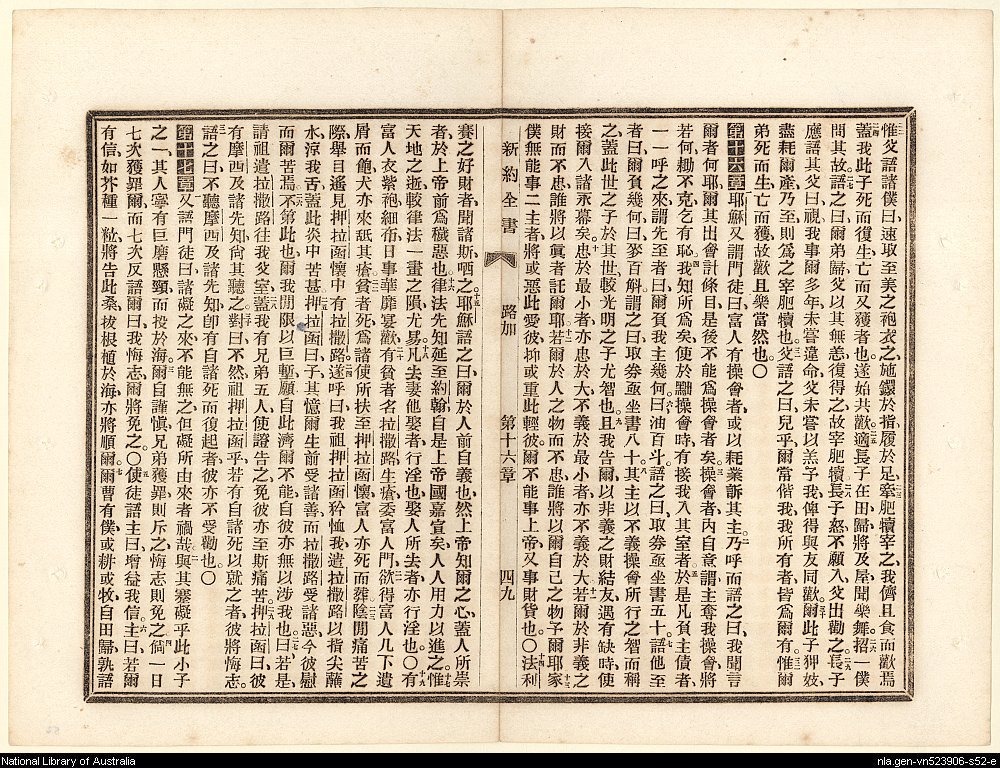 惟父語諸僕曰速取至美之袍衣之施鐶於指履於足牽肥犢宰之我儕且食而歡焉
蓋我此子死而復生亡而又獲者也遂始共歡適長子在田歸將及屋聞樂舞招一僕
問其故語之曰爾弟歸父以其無恙復得之故宰肥犢長子怒不願入父出勸之長子
應語其父曰視我事爾多年未嘗違命父未嘗以羔予我俾得與友同歡爾此子狎妓
盡耗爾產乃至則爲之宰肥犢也父語之曰兒乎爾常偕我我所有者皆爲爾有惟爾
弟死而生亡而獲故歡且樂當然也〇
第十六章耶穌又謂門徒曰富人有操會者或以耗業訴其主乃呼而語之曰我聞言
爾者何耶爾其出會計條目是後不能爲操會者矣操會者內自意謂主奪我操會將
若何耡不克乞有恥我知所爲矣使於黜操會時有接我入其室者於是凡負主債者
一一呼之來謂先至者曰爾負我主幾何曰油百斗語之曰取券亟坐書五十語他至
者曰爾負幾何曰麥百斛謂之曰取券亟坐書八十其主以不義操會所行之智而稱
之蓋此世之子於其世較光明之子尤智也且我告爾以非義之財結友遇有缺時使
接爾入諸永幕矣忠於最小者亦忠於大不義於最小者亦不義於大若爾於非義之
財而不忠誰將以眞者託爾耶若爾於人之物而不忠誰將以爾自己之物予爾耶家
僕無能事二主者將或惡此愛彼抑或重此輕彼爾不能事上帝又事財貨也〇法利
新約全書 路加 第十六章 四九
賽之好財者聞諸斯哂之耶穌語之曰爾於人前自義也然上帝知爾之心蓋人所崇
者於上帝前爲穢惡也律法先知延至約翰自是上帝國嘉宣矣人人用力以進之惟
天地之逝較律法一畫之隕尤易凡去妻他娶者行淫也娶人所去者亦行淫也〇有
富人衣紫袍細布日事華靡宴歡有貧者名拉撒路生瘡委富人門欲得富人几下遺
屑而飽犬亦來舐其瘡貧者死爲諸使所扶至押拉函懷富人亦死而葬陰間痛苦之
際舉目遙見押拉函懷中有拉撒路遂呼曰我祖押拉函矜恤我遣拉撒路以指尖蘸
水涼我舌蓋此炎中苦甚押拉函曰子其憶爾生前受諸善而拉撒路受諸惡今彼慰
而爾苦焉不第此也爾我間限以巨塹願自此濟爾不能自彼亦無以涉我也曰若是
請祖遣拉撒路往我父室蓋我有兄弟五人使證告之免彼亦至斯痛苦押拉函曰彼
有摩西及諸先知尙其聽之對曰不然祖押拉函乎若有自諸死以就之者彼將悔志
語之曰不聽摩西及諸先知卽有自諸死而復起者彼亦不受勸也〇
第十七章又語門徒曰諸礙之來不能無之但礙所由來者禍哉與其窒礙乎此小子
之一其人寧有巨磨懸頸而投於海爾自謹愼兄弟獲罪則斥之悔志則免之倘一日
七次獲罪爾而七次反語爾曰我悔志爾將免之〇使徒語主曰增益我信主曰若爾
有信如芥種一粒將告此桑拔根植於海亦將順爾爾曹有僕或耕或牧自田歸孰語
National Library of Australia
nla.gen-vn523906-s52-e